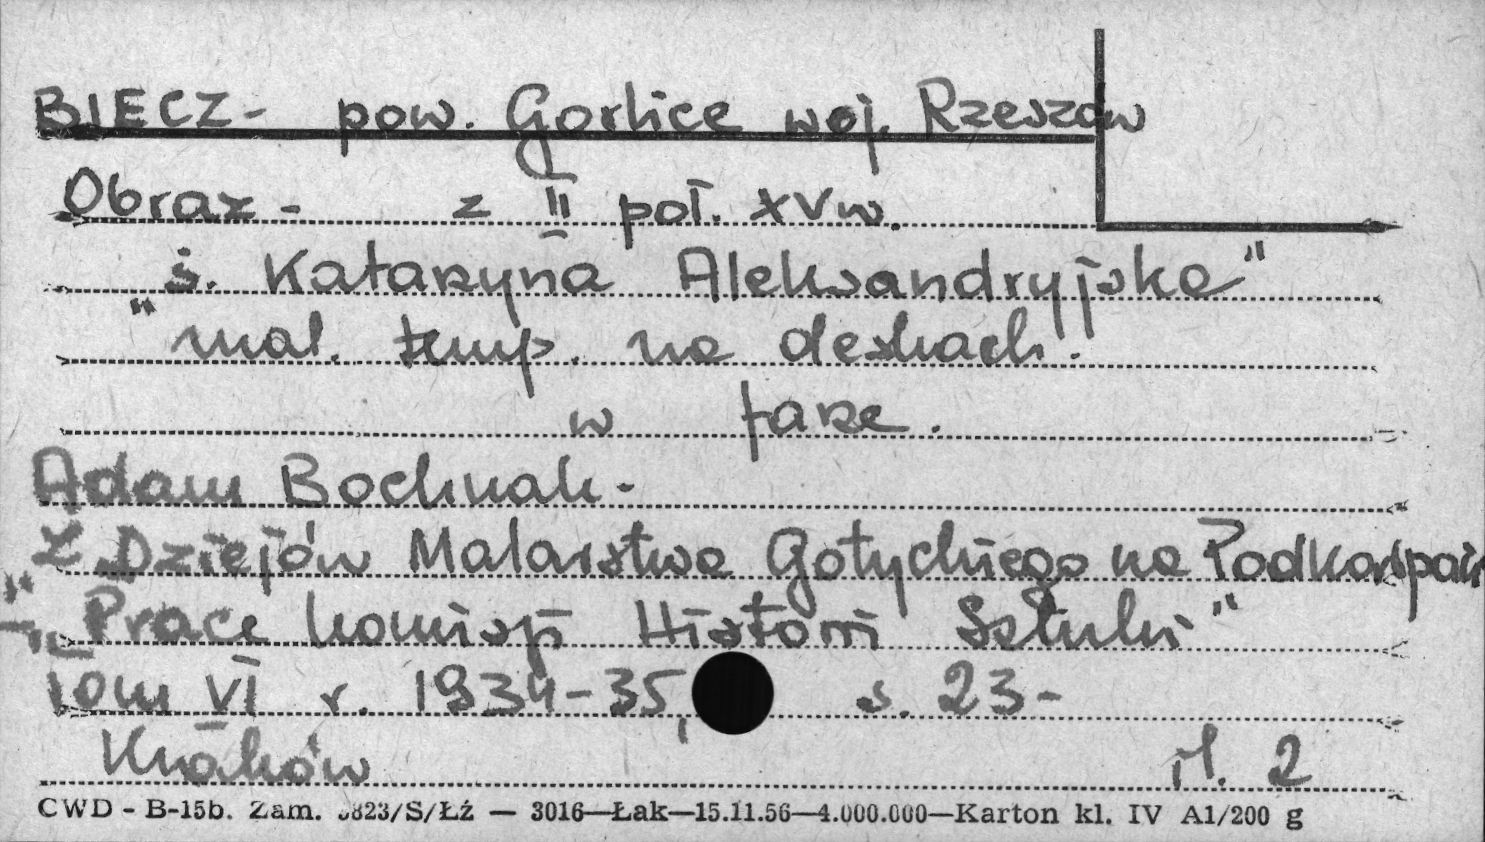 BIECZ - pow. Gorlice woj. Rzeszów
Obraz - z II poł. XV w.
"ś. Katarzyna Aleksandryjska"
mal. temp. na deskach.
w farze.
Adam Bochnak -
Z Dziejów Malarstwa Gotyckiego na Podkarpaiu
"Prace komisji Historii Sztuki"
Tom VI r. 1934-35, s. 23-
Kraków il. 2
CWD - B-15b. Zam. 3823/S/Łź — 3016—Łak—15.11.56—4.000.000—Karton kl. IV A1/200 g